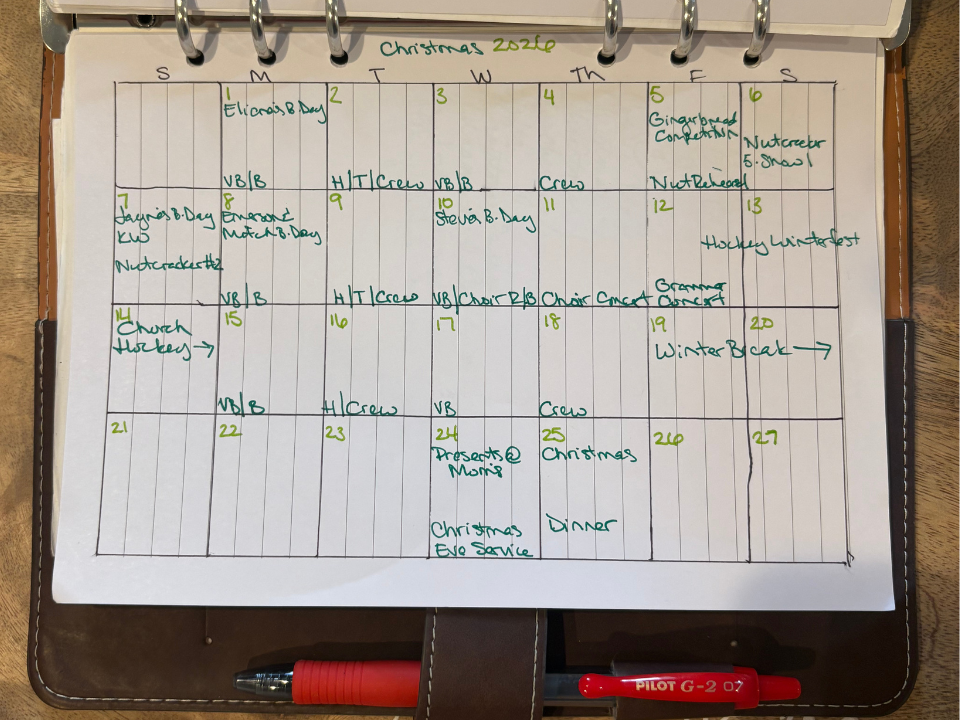 Christmas 2026
S M T W Th F S
1
Eliana's B. Day
VB/B
2
H/T/Crew
3
VB/B
4
Crew
5
Gingerbread
Competition
Nut Rehearsal
6
Nutcracker
5. Show 1
7
Jayna's B. Day
KW
Nutcracker #2
8
Emerson &
Mitch B. Day
VB/B
9
H/T/Crew
10
Steve's B. Day
VB/Choir R/B
11
Choir Concert
12
Grammar
Concert
13
Hockey Winterfest
14
Church
Hockey →
15
VB/B
16
H/Crew
17
VB
18
Crew
19
Winter Break →
20
21
22
23
24
Presents @
Mom's
Christmas
Eve Service
25
Christmas
Dinner
26
27
PILOT G-2 07